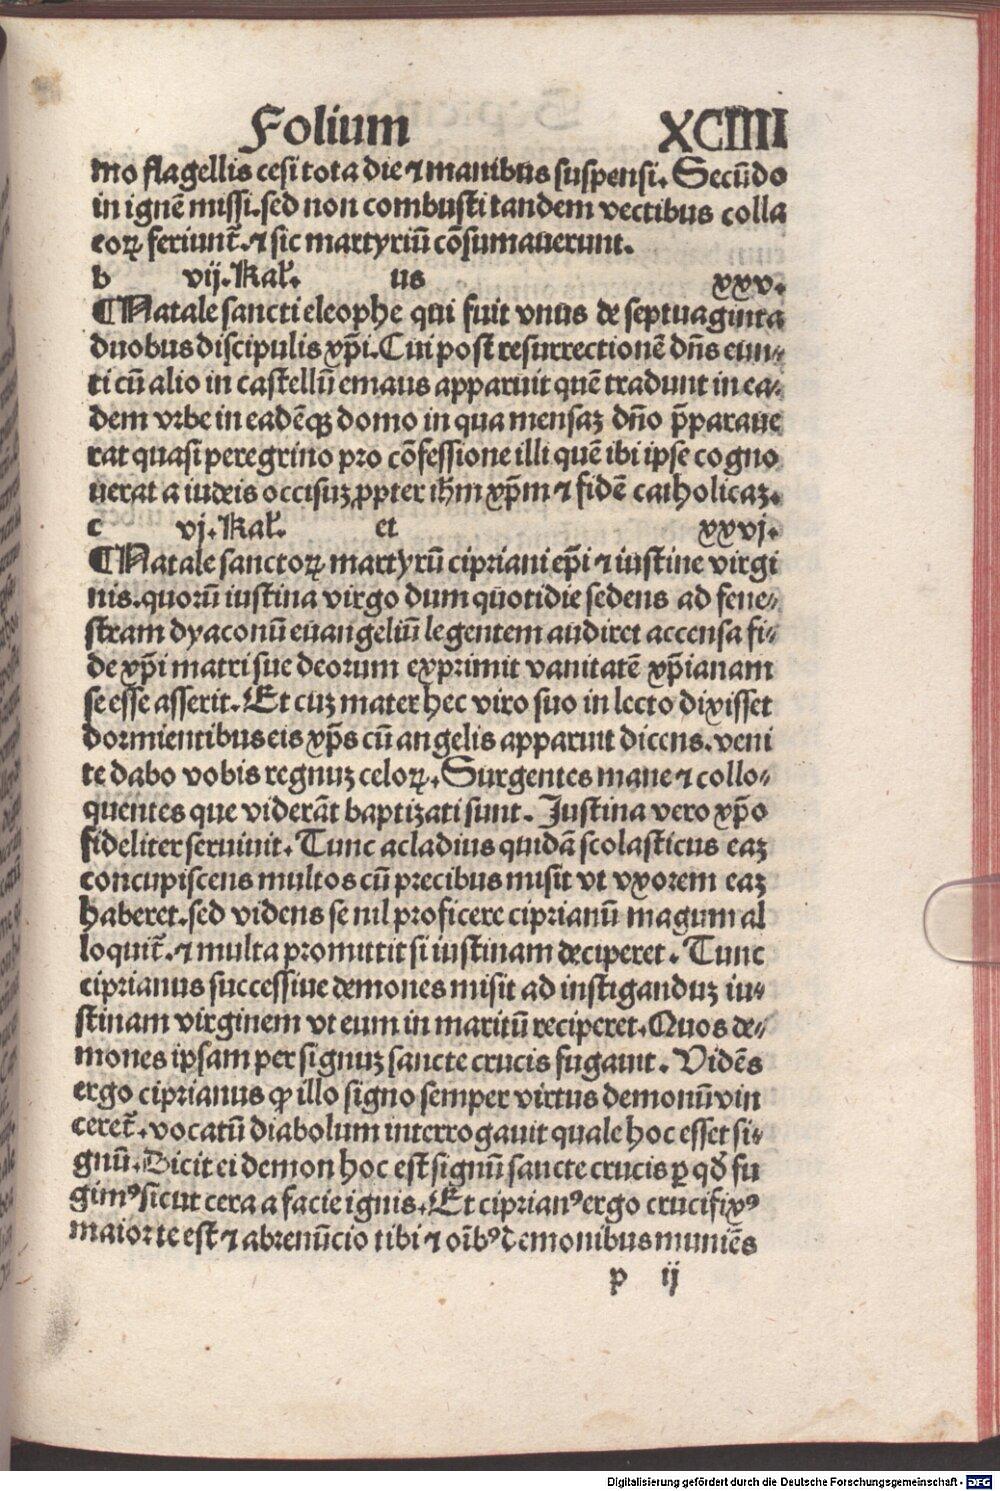 Folium XCIIII
mo flagellis cesi tota die ⁊ manibus suspensi. Secũdo
in ignẽ missi. sed non combusti tandem vectibus colla
eoꝝ feriunt̃. ⁊ sic martyriũ cõsumauerunt.
b vij. Kal̃. us xxv.
¶ Natale sancti eleophe qui fuit vnus de septuaginta
duobus discipulis xp̃i. Cui post resurrectionẽ dñs eun⸗
ti cũ alio in castellũ emaus apparuit quẽ tradunt in ea⸗
dem vrbe in eadẽqꝫ domo in qua mensaꝫ dño p̃paraue
rat quasi peregrino pro cõfessione illi quẽ ibi ipse cogno
uerat a iudeis occisuꝫ ꝓpter ih̃m xp̃m ⁊ fidẽ catholicaꝫ.
c vj. Kal̃. et xxvj.
¶ Natale sanctoꝝ martyrũ cipriani ep̃i ⁊ iustine virgi
nis. quorũ iustina virgo dum quotidie sedens ad fene⸗
stram dyaconũ euangeliũ legentem audiret accensa fi⸗
de xp̃i matri sue deorum exprimit vanitatẽ xp̃ianam
se esse asserit. Et cuꝫ mater hec viro suo in lecto dixisset
dormientibus eis xp̃s cũ angelis apparuit dicens. veni
te dabo vobis regnuꝫ celoꝝ. Surgentes mane ⁊ collo⸗
quentes que viderãt baptizati sunt. Iustina vero xp̃o
fideliter seruiuit. Tunc acladius quidã scolasticus eaꝫ
concupiscens multos cũ precibus misit vt vxorem eaꝫ
haberet. sed videns se nil proficere ciprianũ magum al
loquit̃. ⁊ multa promittit si iustinam deciperet. Tunc
ciprianus successiue demones misit ad instiganduꝫ iu⸗
stinam virginem vt eum in maritũ reciperet. Quos de⸗
mones ipsam per signuꝫ sancte crucis fugauit. Vidẽs
ergo ciprianus ꝙ illo signo semper virtus demonũ vin
ceret̃. vocatũ diabolum interrogauit quale hoc esset si⸗
gnũ. Dicit ei demon hoc est signũ sancte crucis ꝑ qđ fu
gimꝰ sicut cera a facie ignis. Et ciprianꝰ ergo crucifixꝰ
maior te est ⁊ abrenũcio tibi ⁊ oĩbꝰ demonibus muniẽs
p ij
Digitalisierung gefördert durch die Deutsche Forschungsgemeinschaft - DFG